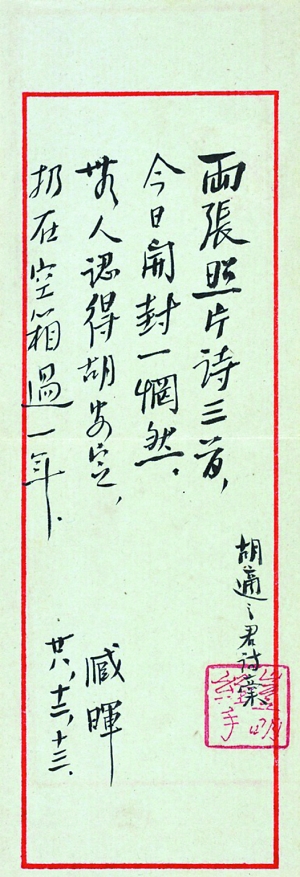 兩張照片詩三首，
今日開封一惘然。
無人認得胡安定，
扔在空箱過一年。
臧暉
廿八、十二、十三、
胡適之君詩